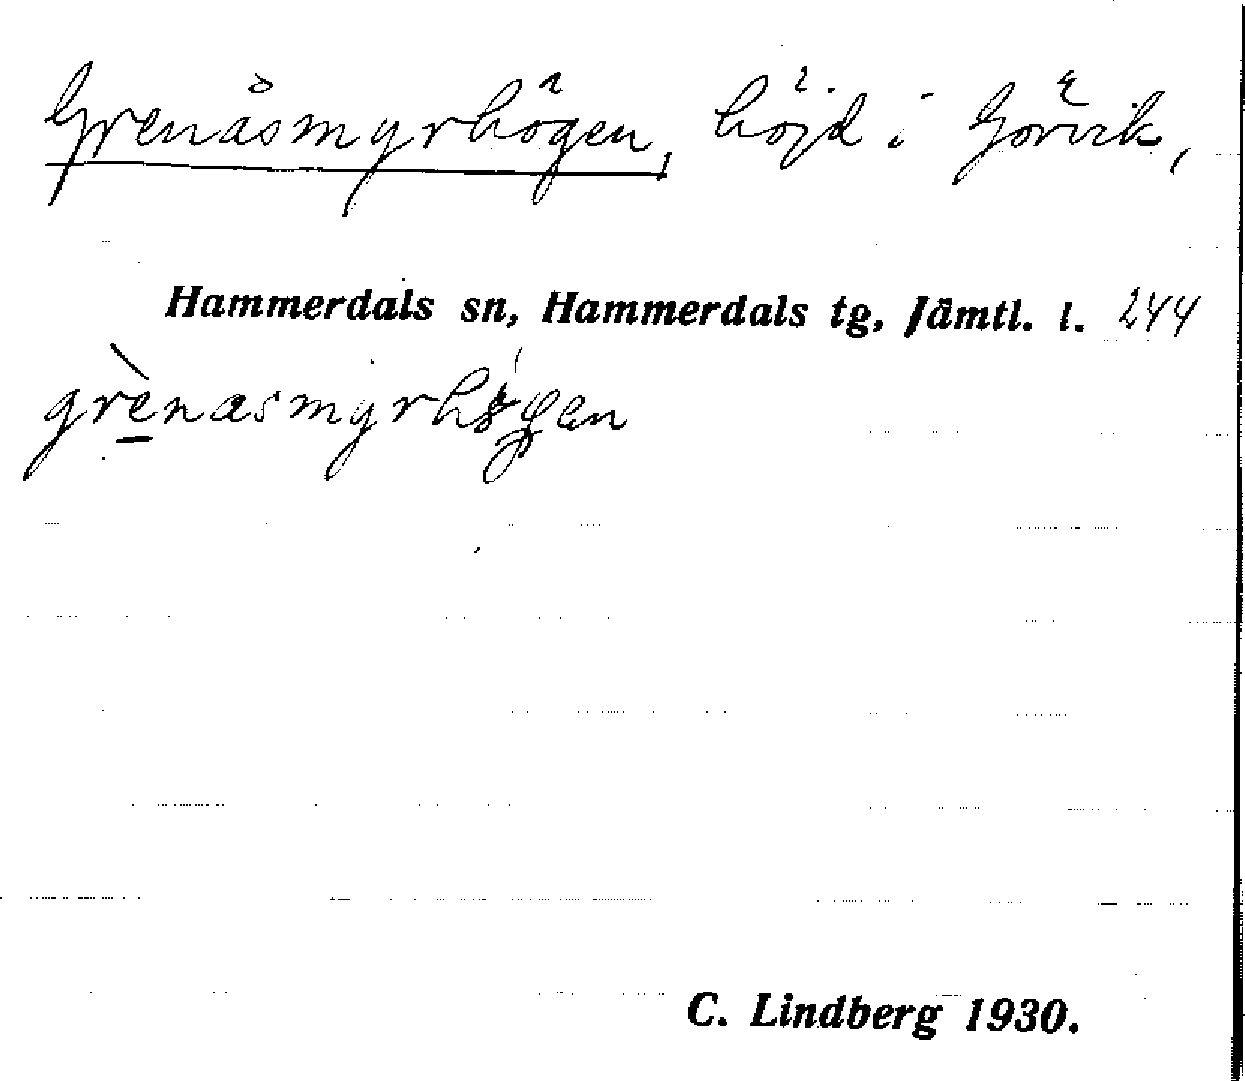 Grenåsmyrhögen, höjd i Görvik,
Hammerdals sn, Hammerdals tg, Jämtl. l. 244
C. Lindberg 1930.